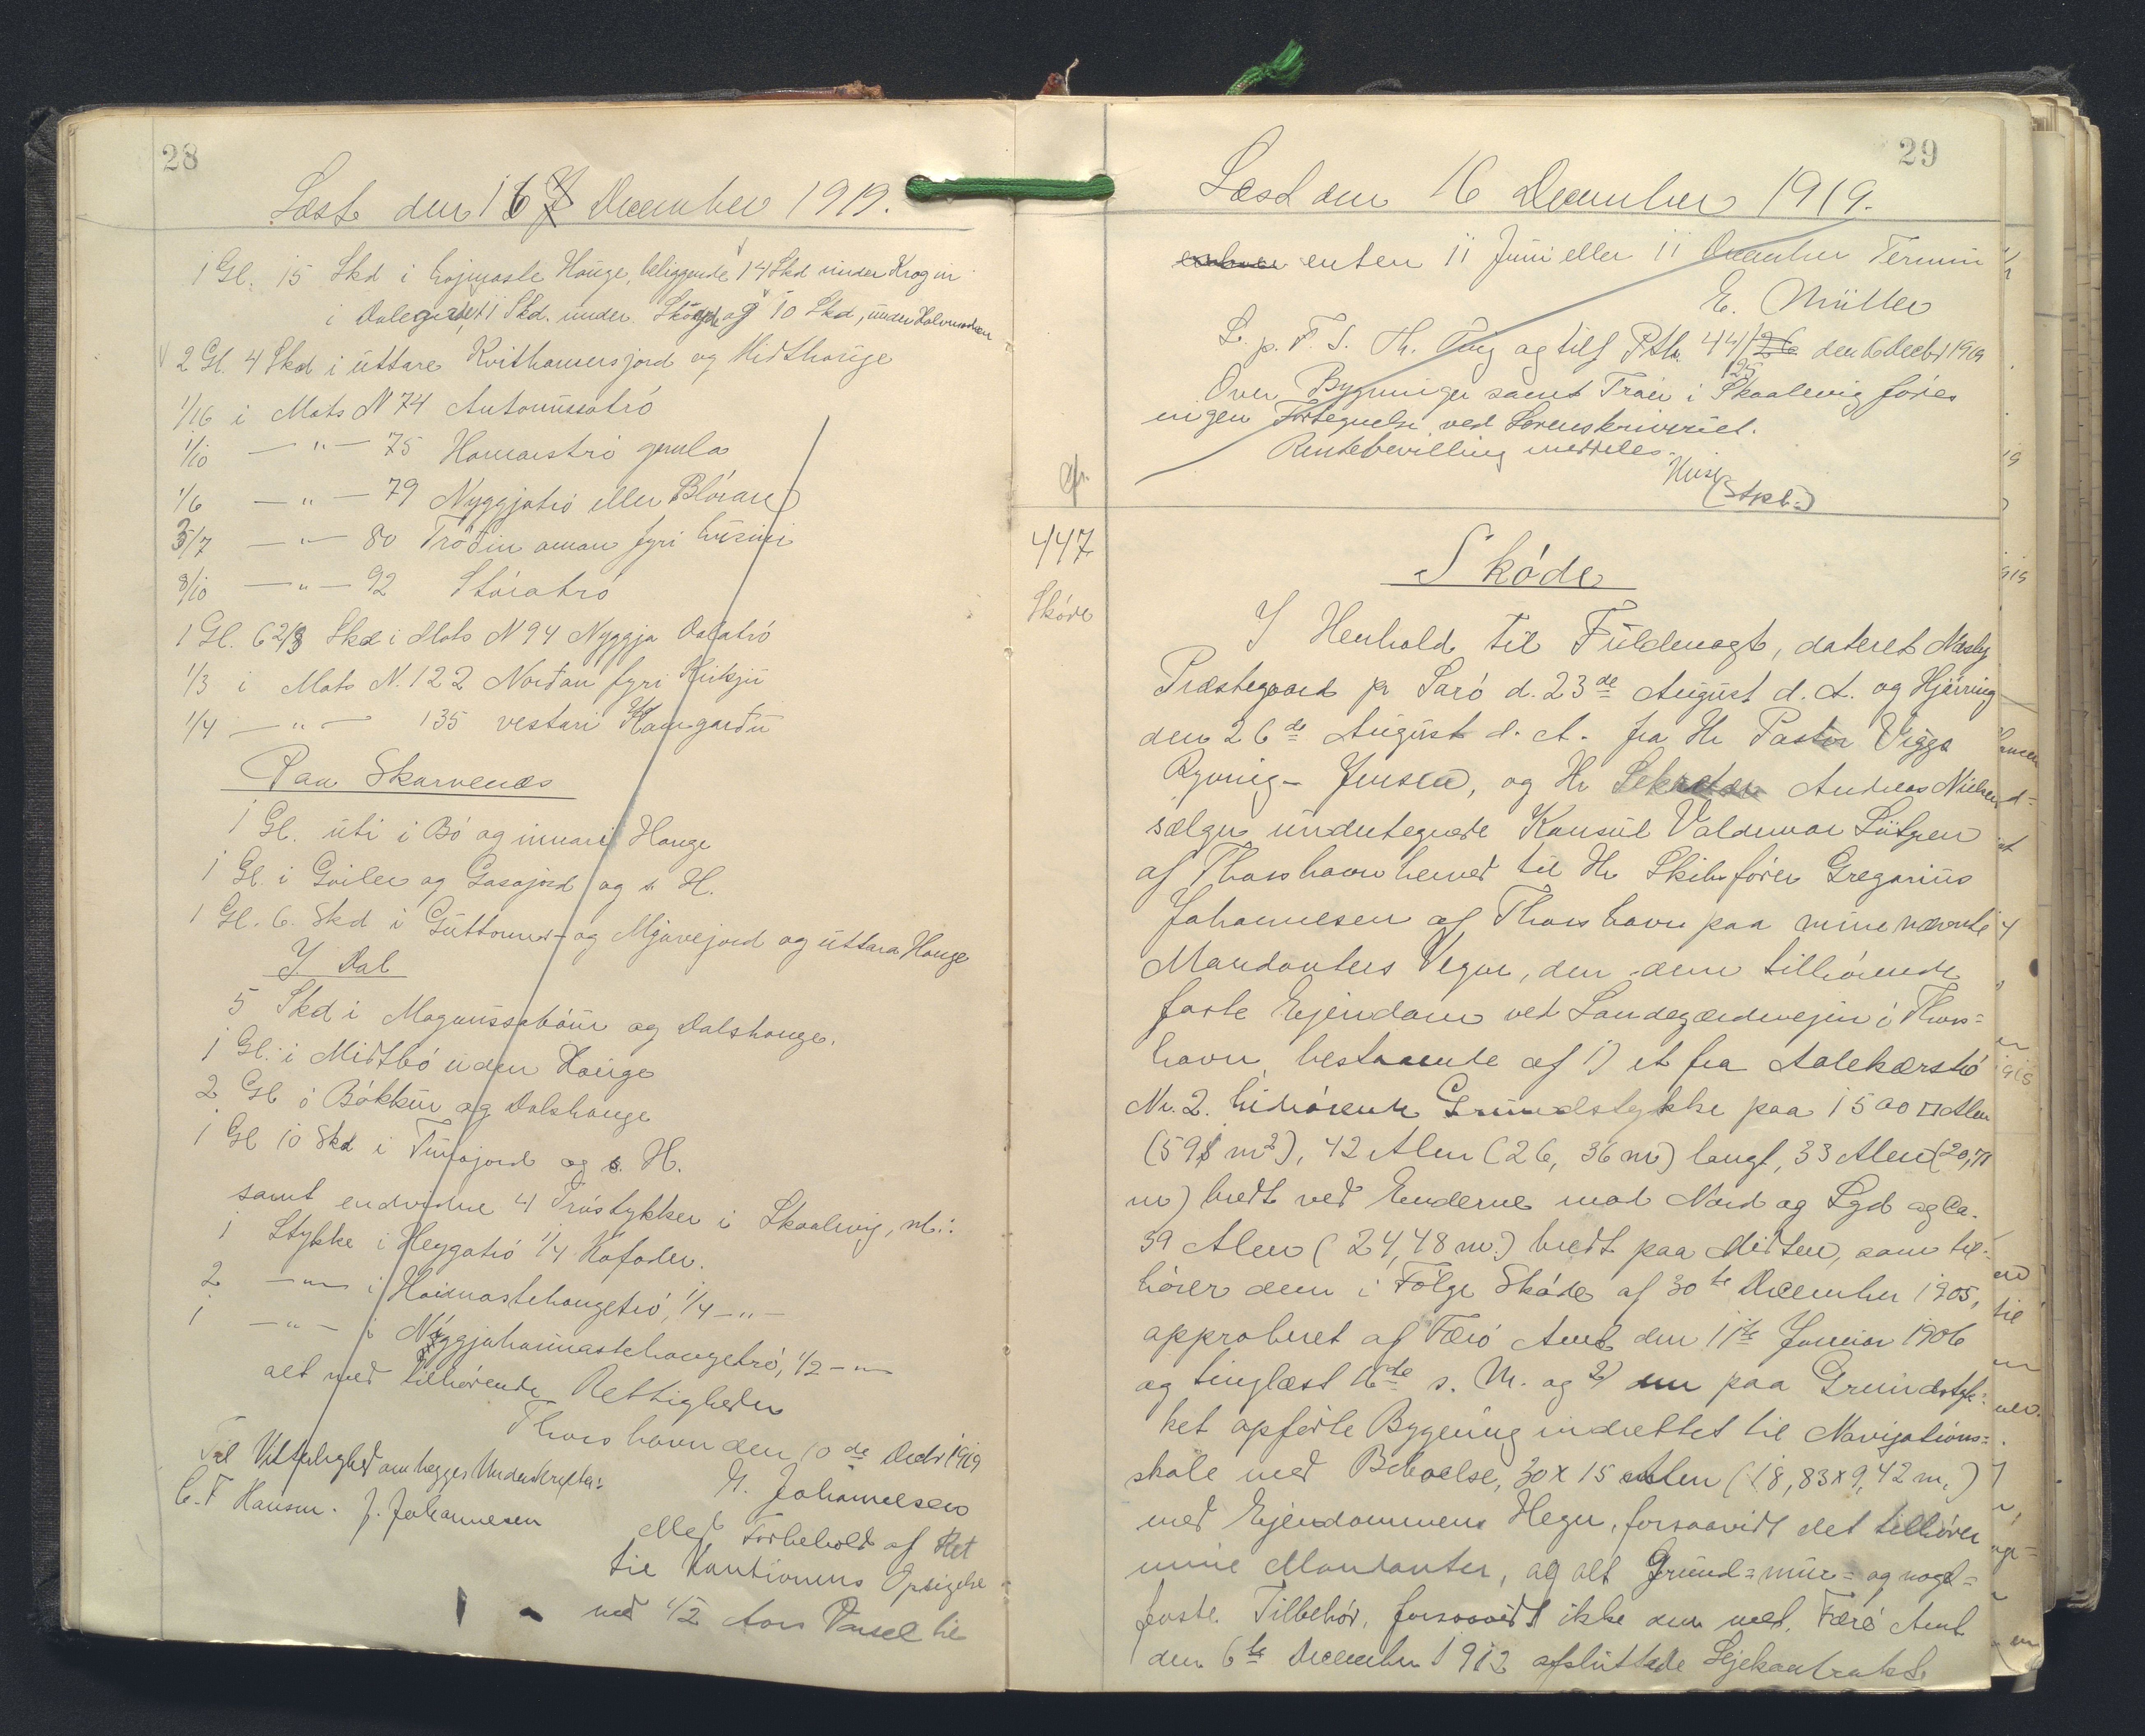 28
Læst den 16 December 1919.
1 Gl. 15 Skd i Hauge, beliggende 14 Skd under Krogin
i 1 Skd. under og 10 Skd, under
2 Gl. 4 Skd i úttare Kvithamersjord og Midthauge
1/16 i Mats N 74
1/10 — " — 75 Hamarstró gamla
1/6 — " — 79 Nyggjatró eller Blóran
3/7 — " — 80 Tróðin aman fyri húsini
8/10 — " — 92 Stóratró
1 Gl. 6 2/3 Skd i Mats N 94 Nyggja Dalatró
1/3 i Mats N. 122 Norðan fyri Kirkjú
1/4 — " — 135 vestari
Paa Skarvenæs
1 Gl. úti i Bó og innari Hauge
1 Gl. i og Gasajord og s. H.
1 Gl. 6. Skd i og Mjavejord og úttara Hauge
I Dal
5 Skd i Magnussabóur og Dalshauge.
1 Gl. i Midtbó uden Hauge
2 Gl i Bókkur og Dalshauge
1 Gl 10 Skd i og s. H.
samt endvidre 4 Tróstykker i Skaalevig, nl.:
1 Stykke i Heygatró 1/4 Kofoder.
2 — " — i 1/4 — " —
1 — " — i 1/2 — " —
alt med tilhørende Rettigheder
Thorshavn den 10de Decbr 1919
Til Vitterlighed om begges Underskrifter: G. Johannesen
C. F Hansen. J. Johannesen
Med Forbehold af Ret
til Kautionens Opsigelse
med 1/2 Aars Varsel til
29
Læst den 16 December 1919.
enten 11 Juni eller 11 December Termin
E. Müller
L. p. F. S. Th. Ting og tilf Ptb. 44/26 den 16 Decbr 1919
125
Over Bygninger samt Tróer i Skaalevig føres
ingen Fortegnelse ved Sorenskriveriet.
Rentebevilling meddeles.
(Stpl.)
447
Skóde
Skóde
I Henhold til Fuldmagt, dateret Næsby
Præstegaard pr Saró d. 23de August d. A. og Hjórring
den 26de August d. A. fra Hr Pastor Viggo
Ryving-Jensen, og Hr Sekretær Andreas Nielsen
sælger undertegnede Konsul Valdemar Lützen
af Thorshavn herved til Hr Skibsfører Gregorius
Johannesen af Thorshavn paa mine nævnte
Mandanters Vegne, den dem tilhórende
faste Ejendom ved Landegærdevejen i Thors=
havn, bestaaende af 1) et fra Aalekærstró
Nr. 2. hidrórende Grundstykke paa 1500 □ Alen
(591 m²), 42 Alen (26,36 m) langt, 33 Alen (20,71
m) bredt ved Enderne mod Nord og Syd og ca.
39 Alen (24,48 m.) bredt paa Midten, som til=
hórer dem i Fólge Skóde af 30te December 1905,
approberet af Færó Amt den 11te Januar 1906
og tinglæst 16de s. M. og 2) en paa Grundstyk=
ket opførte Bygning indrettet til Navigations=
skole med Beboelse, 30 x 15 Alen (18,83 x 9,42 m.)
med Ejendommens Hegn, forsaavidt det tilhórer
mine Mandanter, og alt Grund= mur= og nagl=
faste Tilbehór, forsaavidt ikke den med Færó Amt
den 6te December 1912 afsluttede Lejekontrakt